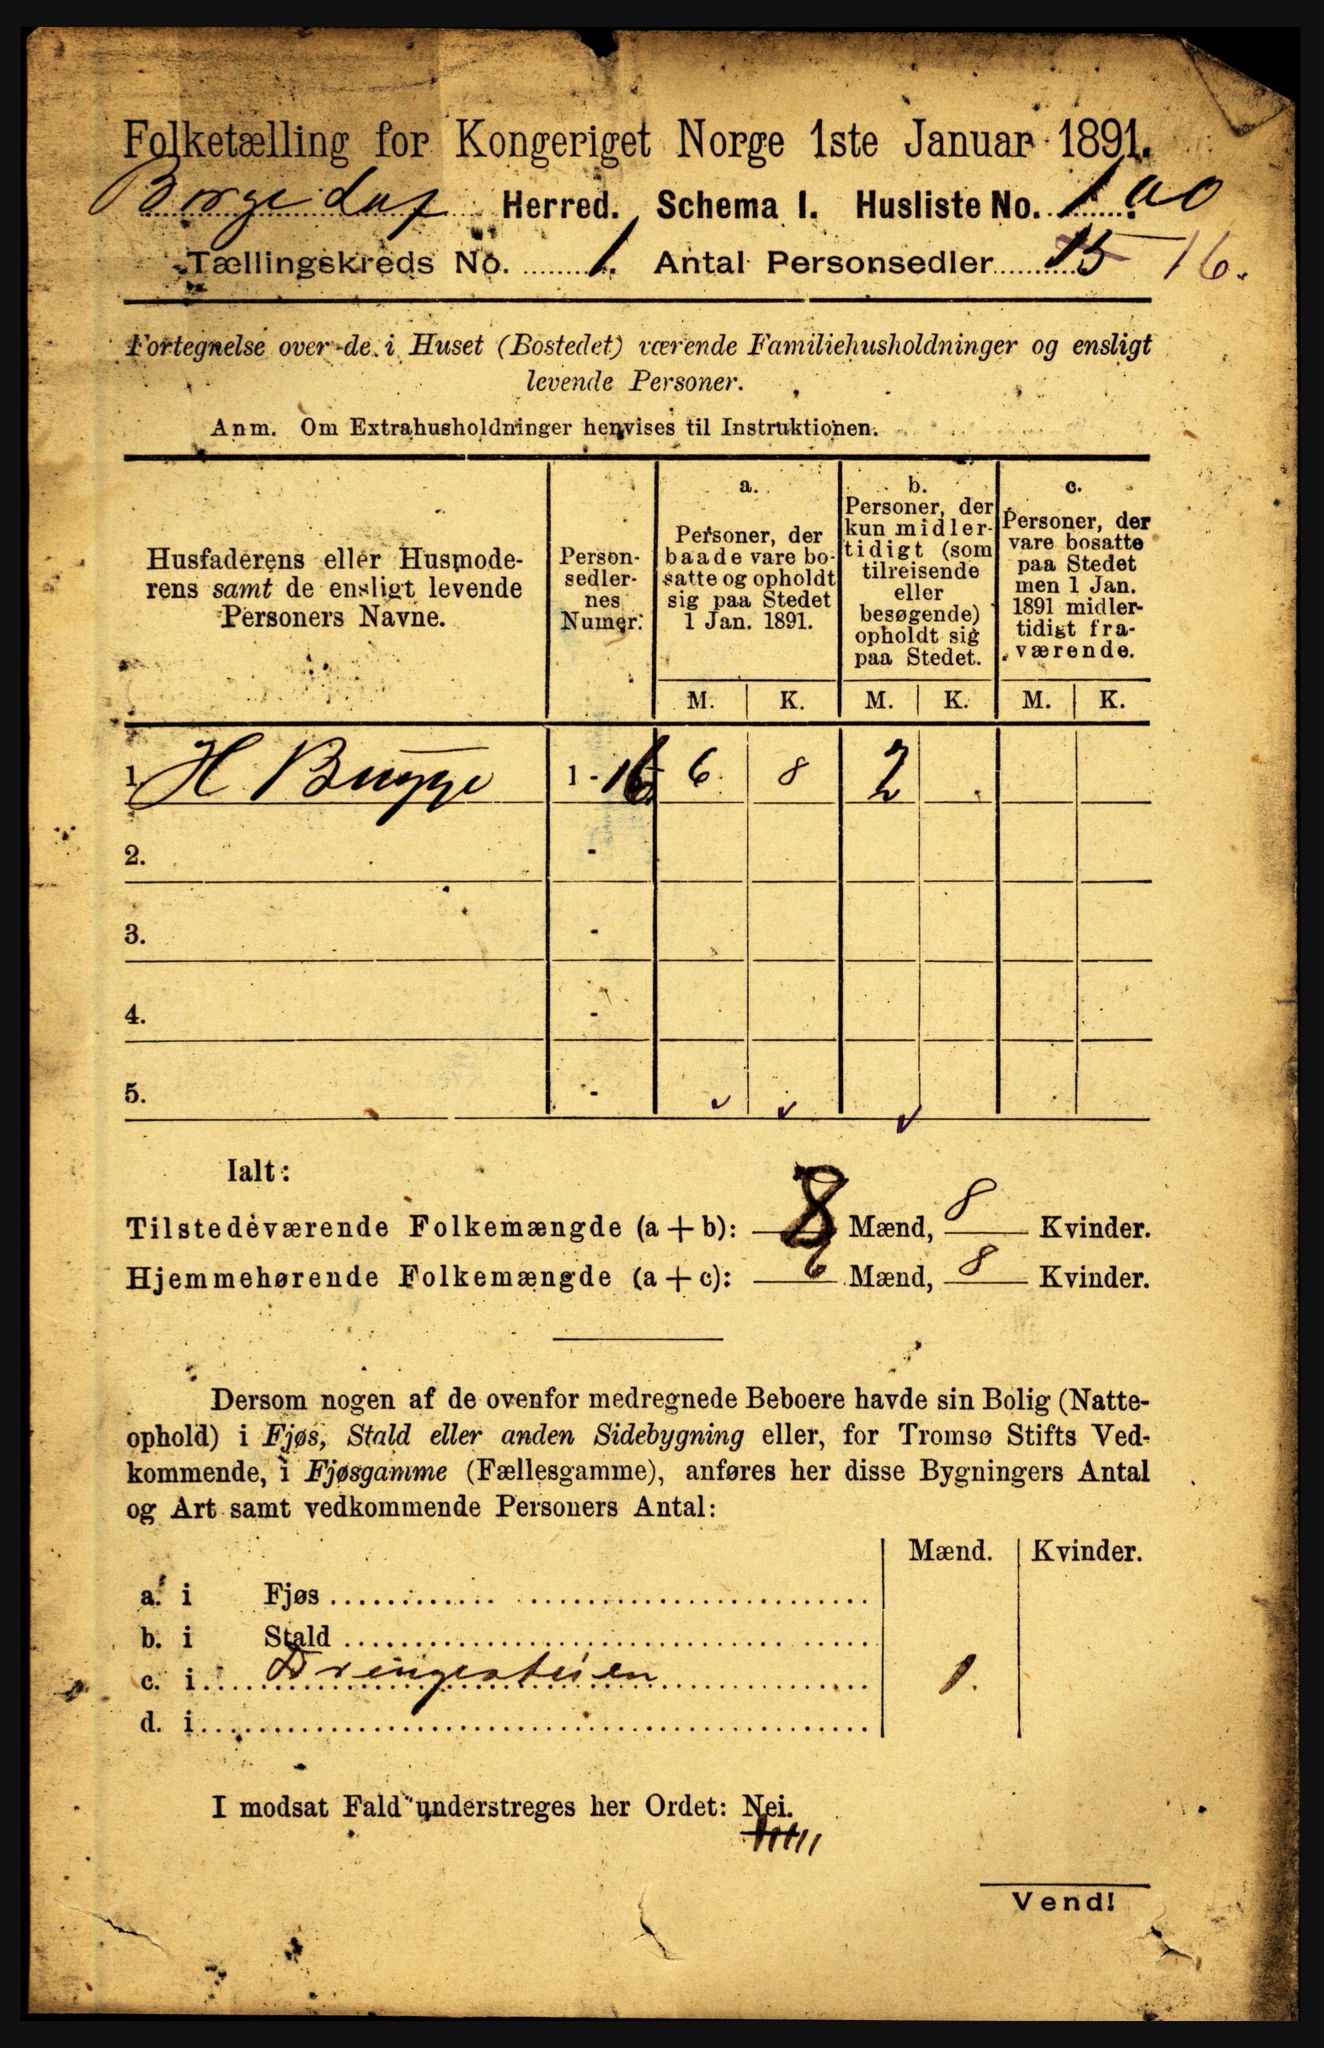 Folketælling for Kongeriget Norge 1ste Januar 1891.
Borge Herred. Schema I. Husliste No. 100
Tællingskreds No. 1. Antal Personsedler 15 16.
Fortegnelse over de i Huset (Bostedet) værende Familiehusholdninger og ensligt
levende Personer.
Anm. Om Extrahusholdninger henvises til Instruktionen.
Husfaderens eller Husmode-
rens samt de ensligt levende
Personers Navne.
Person-
sedler-
nes
Numer.
a.
Personer, der
baade vare bo-
satte og opholdt
sig paa Stedet
1 Jan. 1891.
b.
Personer, der
kun midler-
tidigt (som
tilreisende
eller
besøgende)
opholdt sig
paa Stedet.
c.
Personer, der
vare bosatte
paa Stedet
men 1 Jan.
1891 midler-
tidigt fra-
værende.
M. K. M. K. M. K.
1. H Bugge 1 - 16 6 8 2
2. -
3. -
4. -
5. -
Ialt:
Tilstedeværende Folkemængde (a + b): 8 Mænd, 8 Kvinder.
Hjemmehørende Folkemængde (a + c): 6 Mænd, 8 Kvinder.
Dersom nogen af de ovenfor medregnede Beboere havde sin Bolig (Natte-
ophold) i Fjøs, Stald eller anden Sidebygning eller, for Tromsø Stifts Ved-
kommende, i Fjøsgamme (Fællesgamme), anføres her disse Bygningers Antal
og Art samt vedkommende Personers Antal:
Mænd. Kvinder.
a. i Fjøs
b. i Stald
c. i Drengestuen 1.
d. i
I modsat Fald understreges her Ordet: Nei.
Vend!